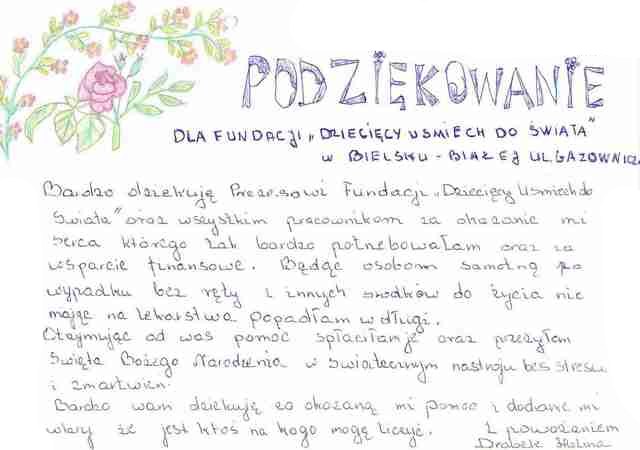 PODZIĘKOWANIE
DLA FUNDACJI „DZIECIĘCY USMIECH DO ŚWIATA"
W BIELSKU - BIAŁEJ UL. GAZOWNICZ
Bardzo dziekuję Prezesowi Fundacji „Dziecięcy Usmiech do
Świata" oraz wszystkim pracownikom za okazanie mi
serca którego tak bardzo potrzebowałam oraz za
wsparcie finansowe. Będąc osobom samotną po
wypadku bez ręty i innych srodków do życia nie
mając na lekarstwa popadłam w długi.
Otrzymując od was pomoc spłaciłam je oraz przeżyłam
Święta Bożego Narodzenia w swiątecznym nastroju bes stresu
i zmartwien.
Bardzo wam dziekuję za okazaną mi pomoc i dodanie mi
wiary że jest ktoś na kogo mogę liczyć. Z poważaniem
Halina